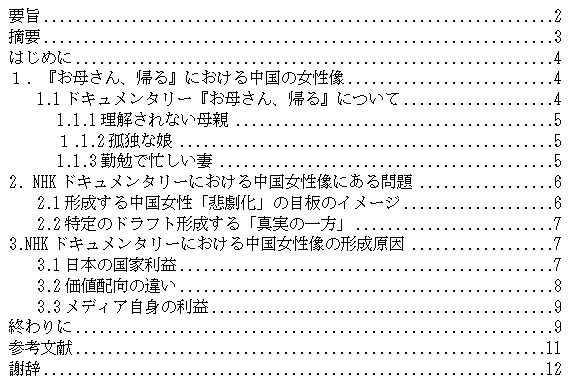 要旨........................................................2
摘要........................................................3
はじめに....................................................4
１．『お母さん、帰る』における中国の女性像....................4
1.1ドキュメンタリー『お母さん、帰る』について................4
1.1.1理解されない母親......................................5
１.1.2孤独な娘.............................................5
1.1.3勤勉で忙しい妻........................................5
2．NHKドキュメンタリーにおける中国女性像にある問題............6
2.1形成する中国女性「悲劇化」の目板のイメージ................6
2.2特定のドラフト形成する「真実の一方」......................7
3.NHKドキュメンタリーにおける中国女性像の形成原因............7
3.1日本の国家利益..........................................7
3.2価値配向の違い..........................................8
3.3メディア自身の利益......................................9
終わりに....................................................9
参考文献....................................................11
謝辞........................................................12